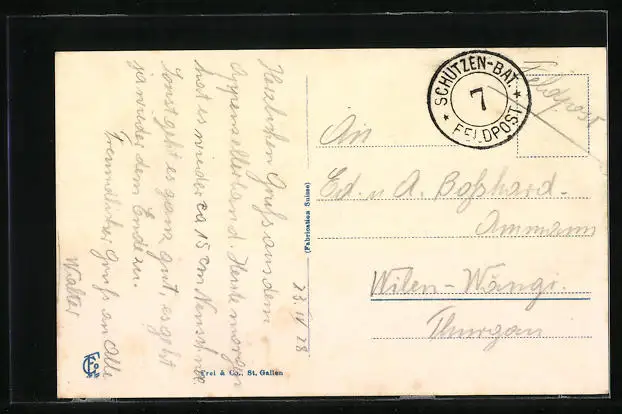 Herzlichen Gruss aus dem
Appenzellerland. Heute morgen
hat es wieder ca 15 cm Neuschnee.
Sonst geht es ganz gut, es geht
ja wieder dem Ende zu.
Freundlicher Gruss an Alle
Walter
23. IV 28
(Fabrication Suisse)
Frei & Co., St. Gallen
SCHÜTZEN-BAT.
7
FELDPOST
Feldpost
An
Ed. u A. Boßhard-
Ammann
Wilen-Wängi.
Thurgau